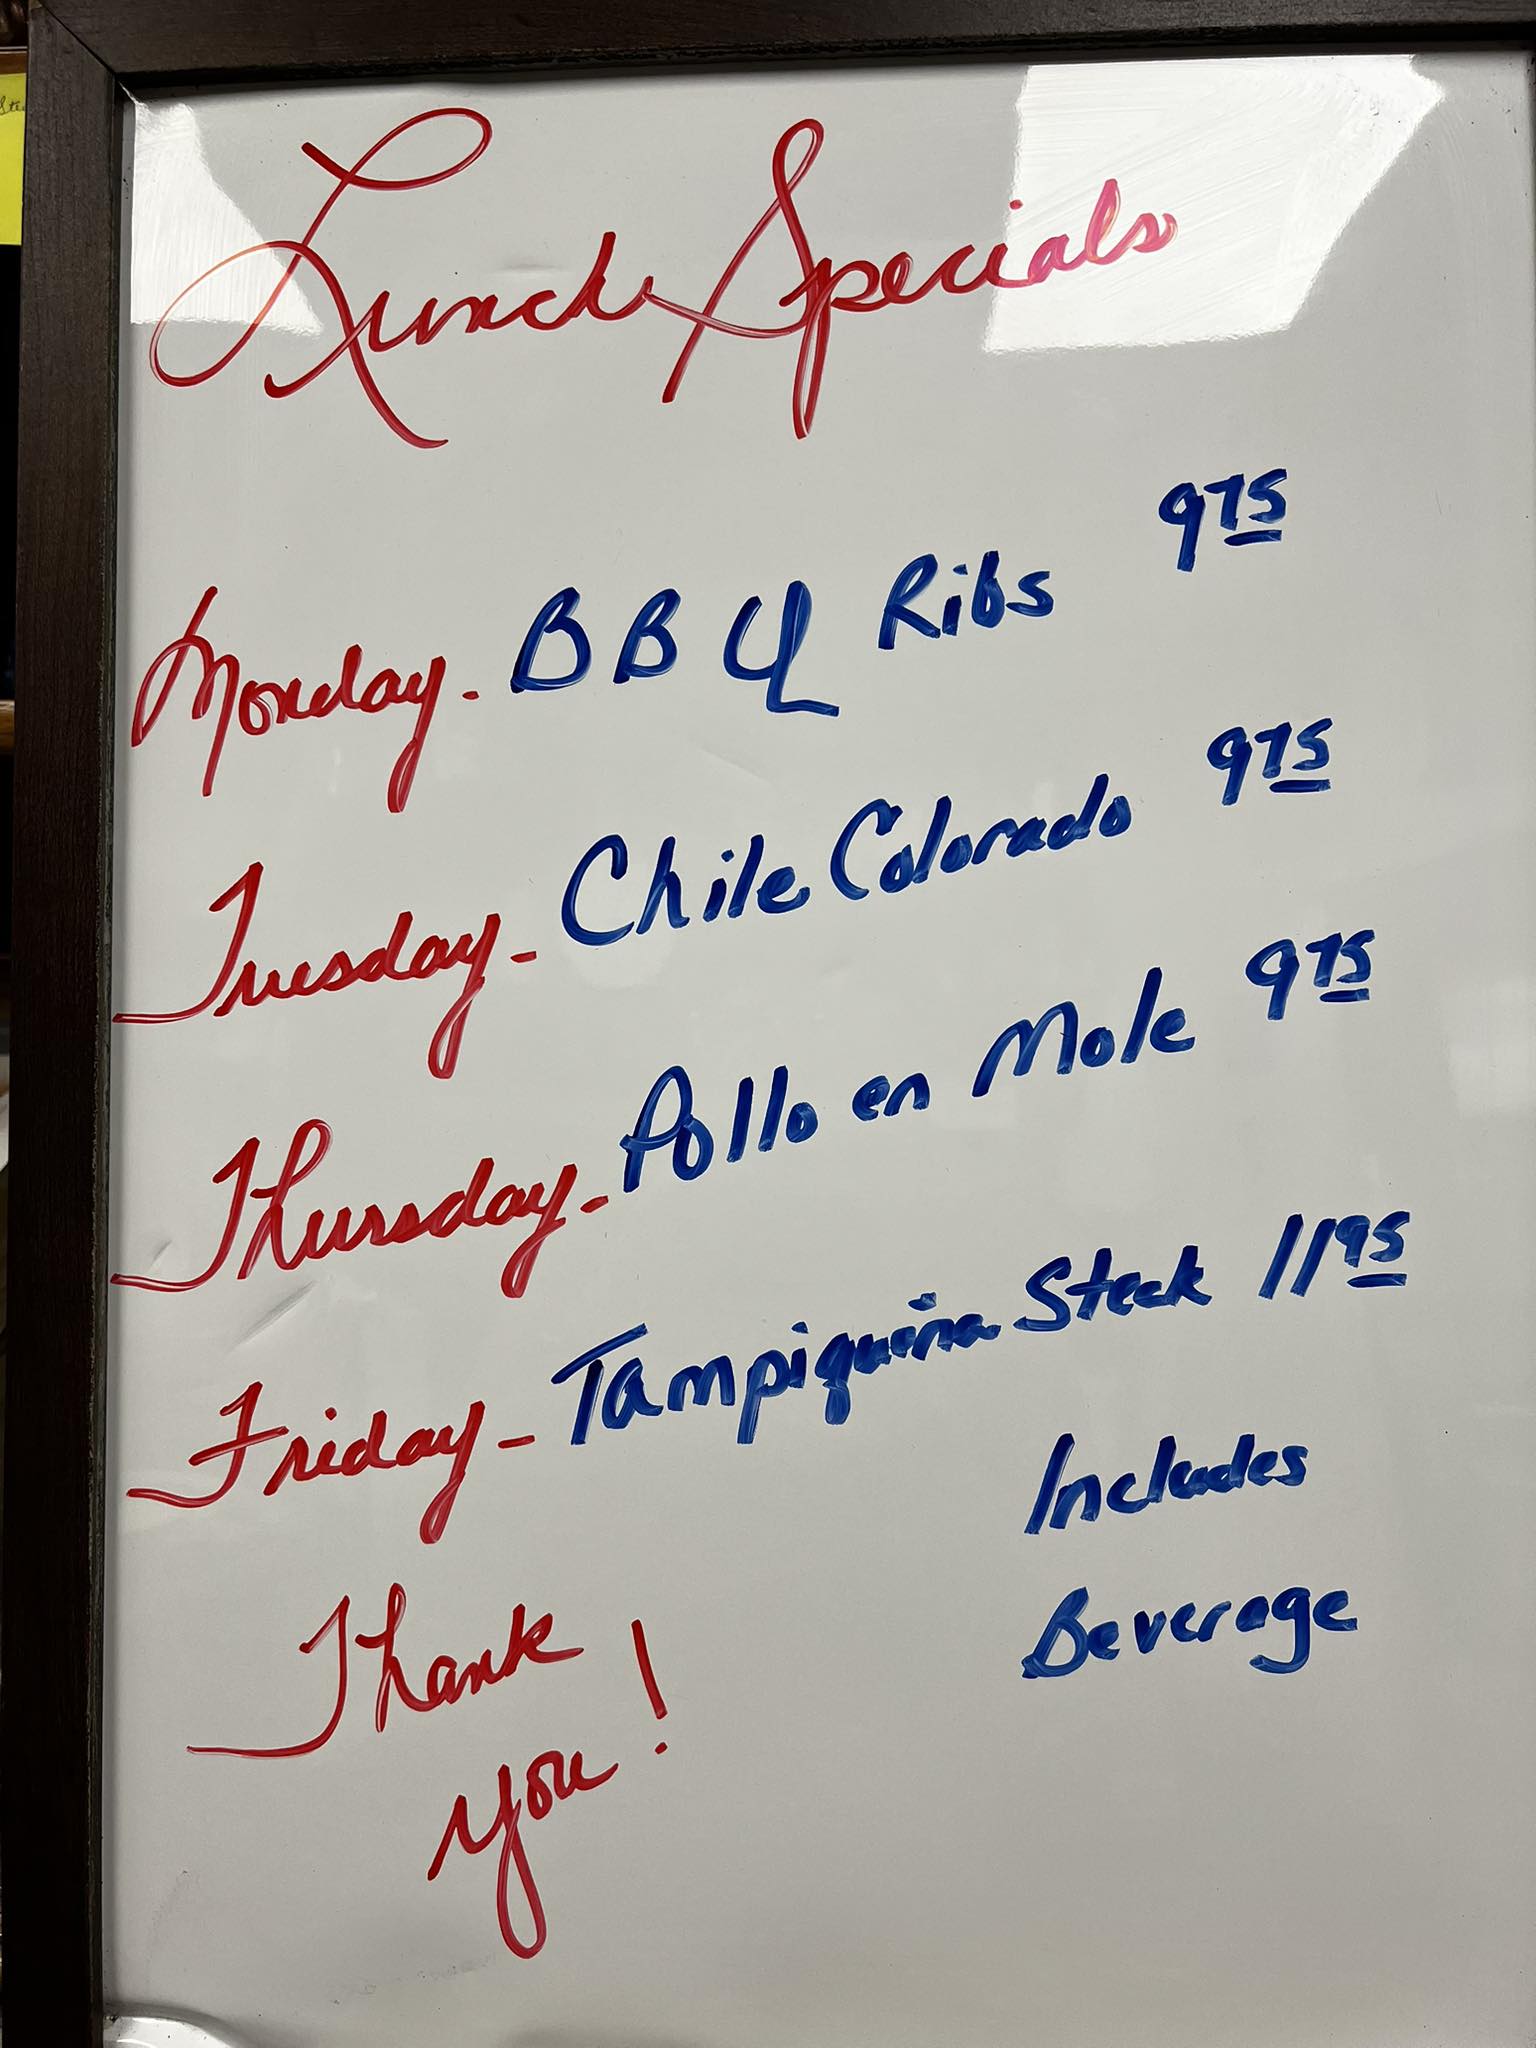 Lunch Specials
Monday - BBQ Ribs 9 75
Tuesday - Chile Colorado 9 75
Thursday - Pollo en Mole 9 75
Friday - Tampiqueña Steak 11 95
Includes
Beverage
Thank
you!